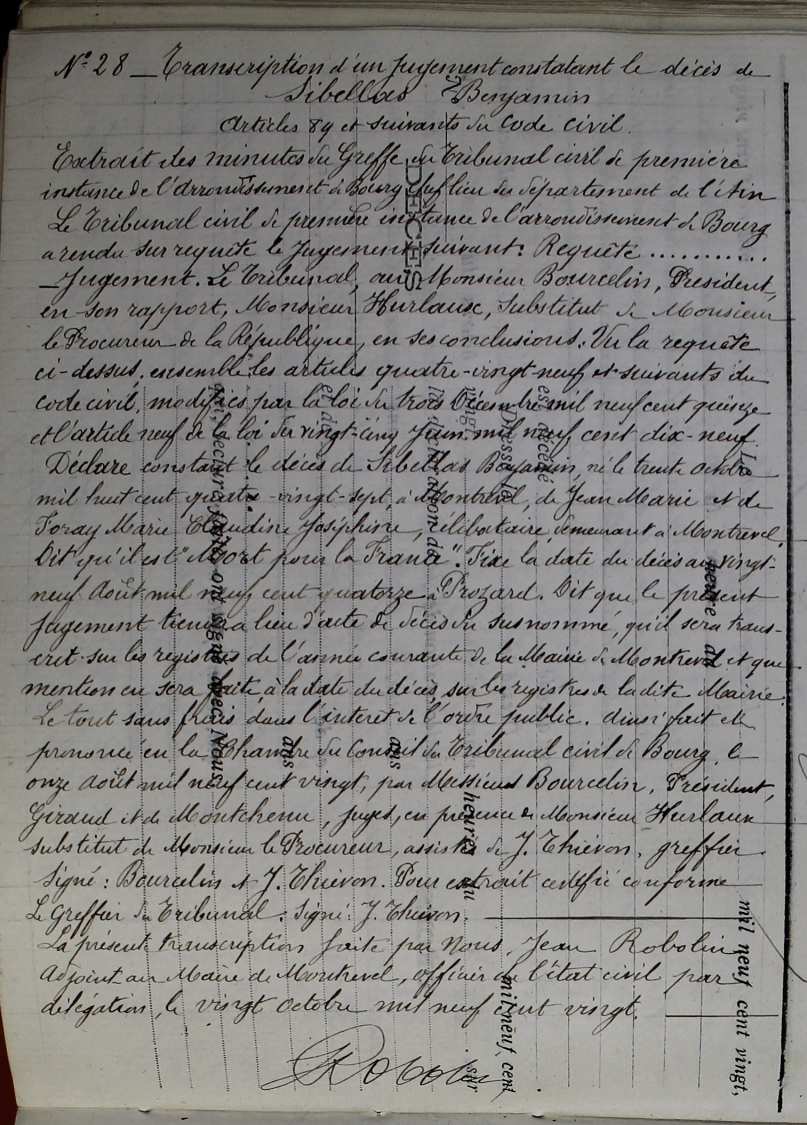 N° 28 _ Transcription d'un Jugement constatant le décès de
Sibellas Benjamin
Articles 89 et suivants du Code Civil.
Extrait des minutes du Greffe du Tribunal civil de première
instance de l'arrondissement de Bourg chef lieu du département de l'Ain
Le Tribunal civil de première instance de l'arrondissement de Bourg
a rendu sur requête le Jugement suivant: Requête ...........
_ Jugement. Le Tribunal, ouï Monsieur Bourcelin, Président,
en son rapport, Monsieur Hurlaux, substitut de Monsieur
le Procureur de la République, en ses conclusions. Vu la requête
ci-dessus, ensemble les articles quatre-vingt-neuf et suivants du
code civil, modifiés par la loi du trois Décembre mil neuf cent quinze
et l'article neuf de la loi du vingt-cinq Juin mil neuf cent dix-neuf.
Déclare constant le décès de Sibellas Benjamin, né le trente octobre
mil huit cent quatre-vingt-sept, à Montrevel, de Jean Marie et de
Foray Marie Claudine Joséphine, célibataire, demeurant à Montrevel.
Dit qu'il est "Mort pour la France". Fixe la date du décès au vingt-
neuf Août mil neuf cent quatorze à Prozard. Dit que le présent
jugement tiendra lieu d'acte de décès du susnommé, qu'il sera trans-
crit sur les registres de l'année courante de la Mairie de Montrevel et que
mention en sera faite, à la date du décès, sur les registres de la dite Mairie.
Le tout sans frais dans l'intérêt de l'ordre public. Ainsi fait et
prononcé en la Chambre du Conseil du Tribunal civil de Bourg, le
onze Août mil neuf cent vingt, par Messieurs Bourcelin, Président,
Giraud et de Montchenu, juges, en présence de Monsieur Hurlaux
substitut de Monsieur le Procureur, assistés de J. Thiévon, greffier.
Signé: Bourcelin et J. Thiévon. Pour extrait certifié conforme
Le Greffier du Tribunal: Signé: J. Thiévon.
La présente transcription faite par Nous, Jean Robolin
Adjoint au Maire de Montrevel, officier de l'état civil par
délégation, le vingt octobre mil neuf cent vingt.
Robolin
DÉCÈS
mil neuf cent vingt,
est décédé
heures du
mil neuf cent
sur
ans
ans
et de